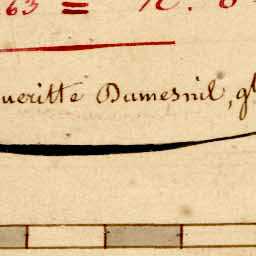 63 =
ueritte Dumesnil, g